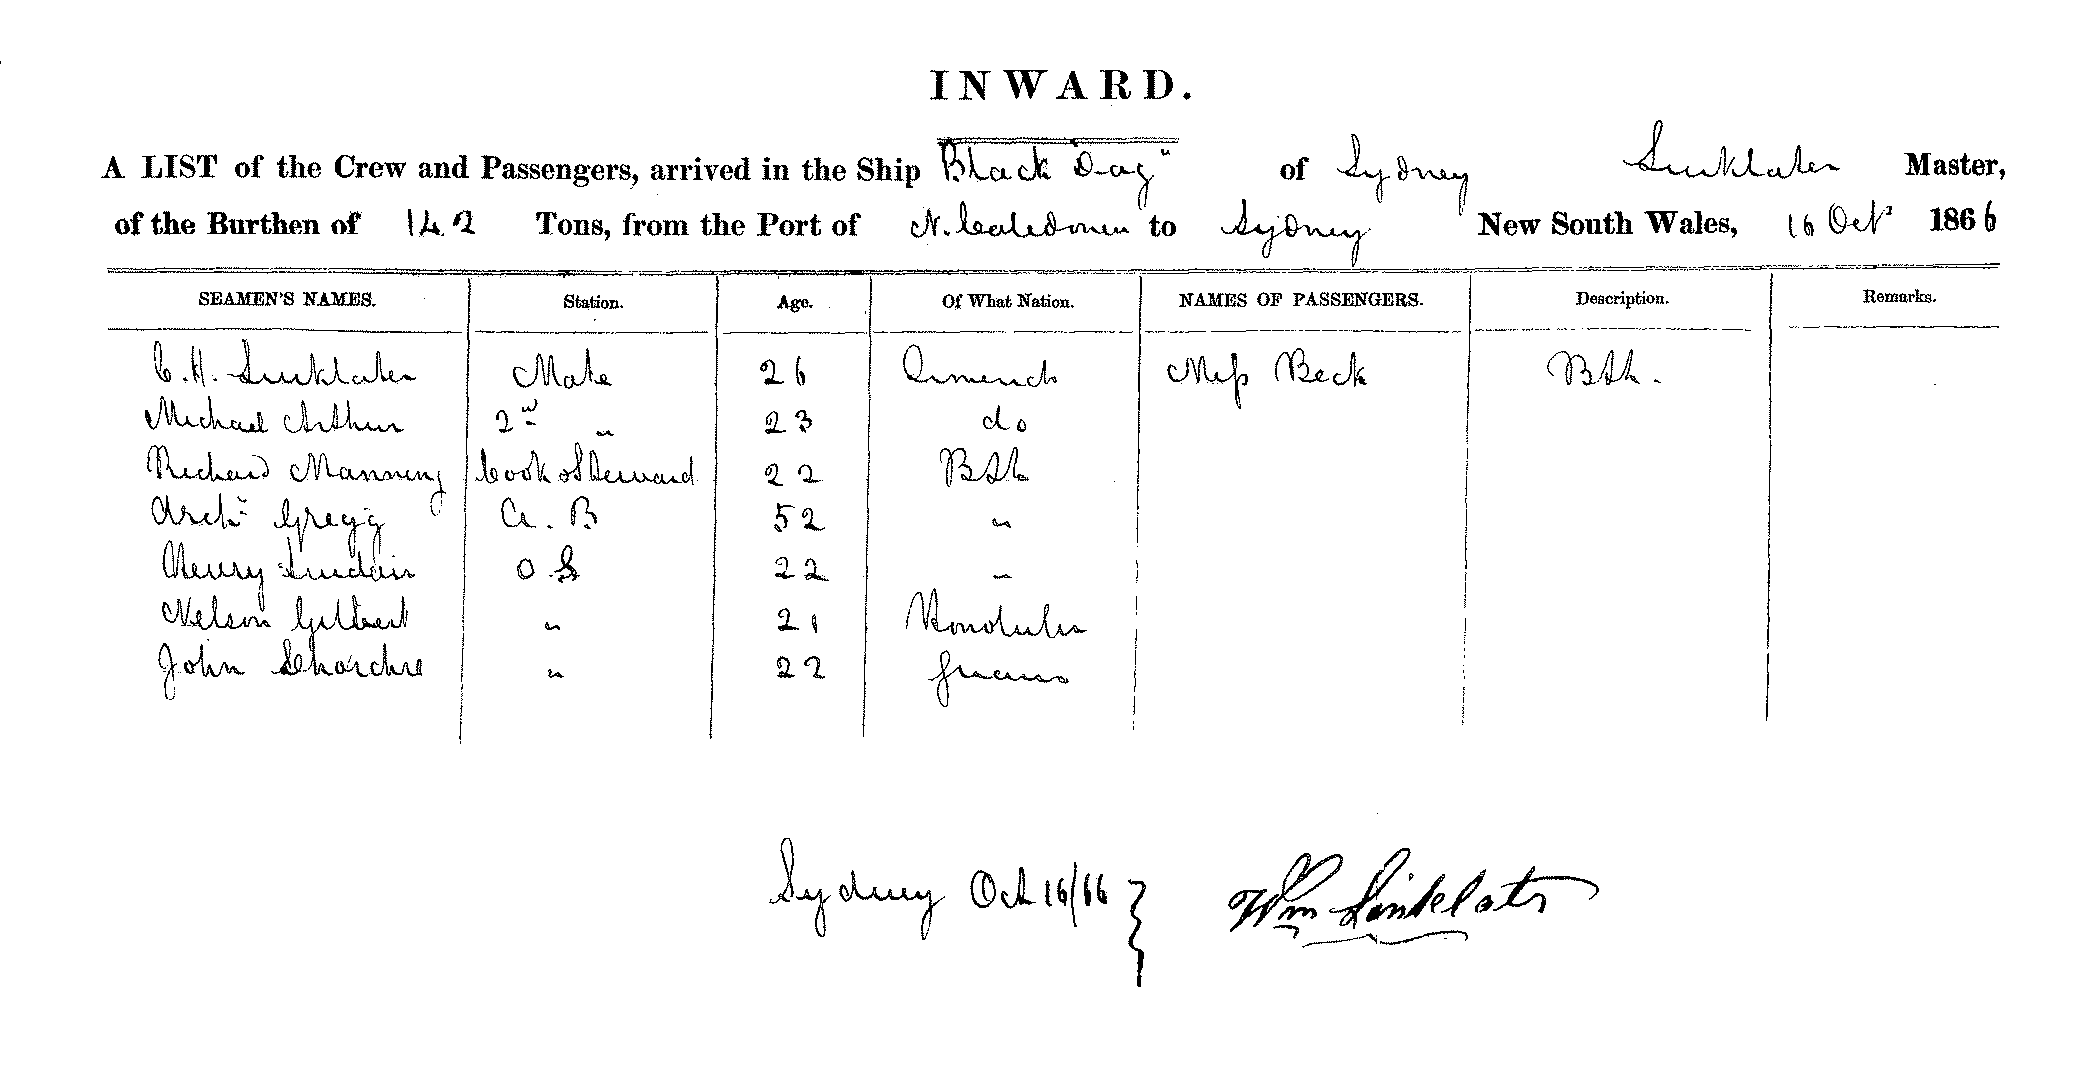 INWARD.
A LIST of the Crew and Passengers, arrived in the Ship "Black Dog" of Sydney Sinklater Master,
of the Burthen of 142 Tons, from the Port of N. Caledonia to Sydney New South Wales, 16 Oct 1866
SEAMEN'S NAMES. Station. Age. Of What Nation. NAMES OF PASSENGERS. Description. Remarks.
C. H. Sinklater Mate 26 Miss Beck Bth.
Michael Arthur 2nd " 23 do
Richard Manning Cook & Steward 22 Bth
Archd Gregg A. B 52 "
Henry Sinclair O S 22 "
Nelson Gilbert " 21 Honolulu
John " 22
Sydney Oct 16/66 } Wm Sinklater